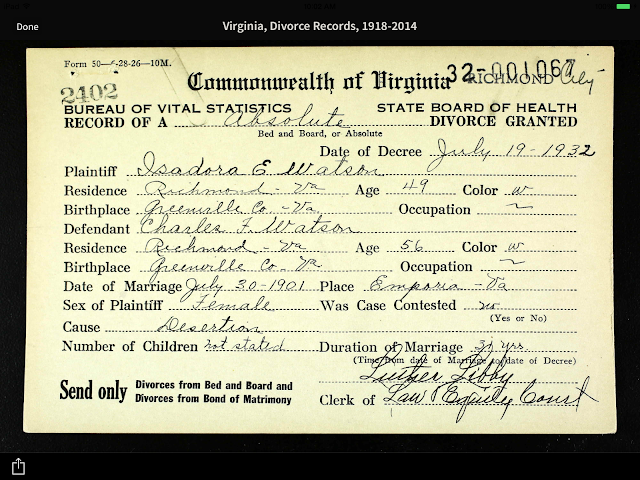 Done
Virginia, Divorce Records, 1918-2014
Form 50—6-28-26—10M.
2402
Commonwealth of Virginia
32-001067
RICHMOND City
BUREAU OF VITAL STATISTICS STATE BOARD OF HEALTH
RECORD OF A Absolute DIVORCE GRANTED
Bed and Board, or Absolute
Date of Decree July 19-1932
Plaintiff Isadora E Watson
Residence Richmond - Va Age 49 Color w
Birthplace Greenville Co - Va Occupation ~
Defendant Charles F. Watson
Residence Richmond - Va Age 56 Color w
Birthplace Greenville Co - Va Occupation ~
Date of Marriage July 30-1901 Place Emporia - Va
Sex of Plaintiff Female Was Case Contested no
(Yes or No)
Cause Desertion
Number of Children not stated Duration of Marriage 31 yrs.
(Time from date of Marriage to date of Decree)
Send only Divorces from Bed and Board and
Divorces from Bond of Matrimony
Luther Libby
Clerk of Law & Equity Court